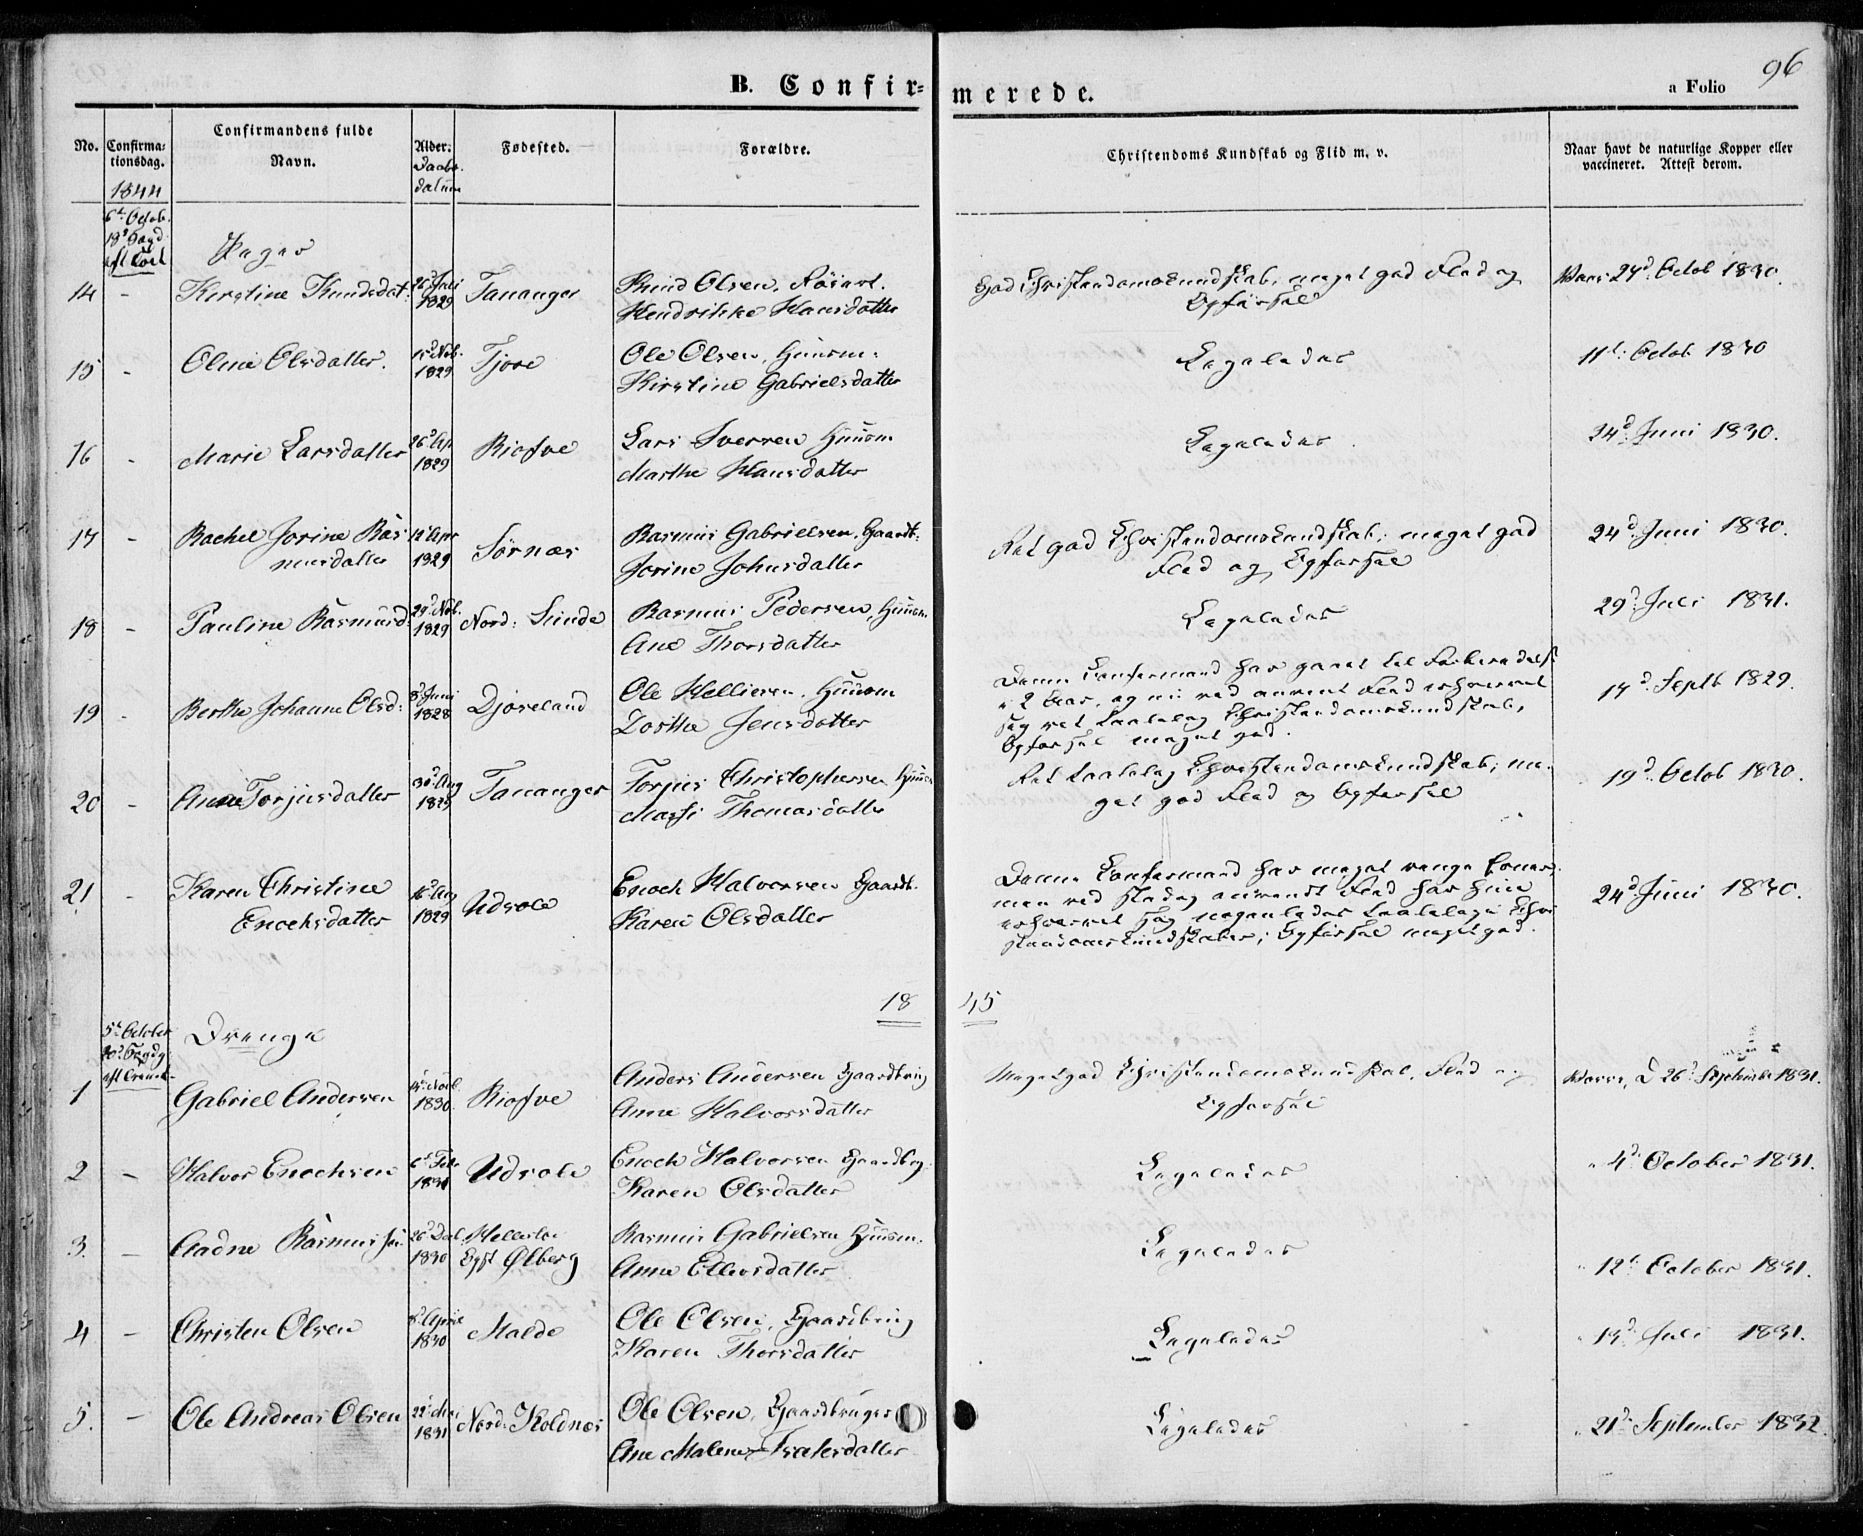 96
B. Confir= merede.
a Folio
No.
Confirma=
tionsdag.
Confirmandens fulde
Navn.
Alder.
Daabs-
datum
Fødested.
Forældre.
Christendoms Kundskab og Flid m. v.
Naar havt de naturlige Kopper eller
vaccineret. Attest derom.
1844
6t Octob.
18d Søgd
Piger
14 - Kirstine Knudsdat: 1829 Tananger Knud Olsen,
Hendrikke Hansdatter
God Christendomskundskab, meget god Flid og
Opførsel
Vacc: 24d Octob 1830.
15 - Oline Olsdatter. 15d Nob. 1829 Tjore Ole Olsen, Huusm:
Kirstine Gabrielsdatter
Ligeledes
11t Octob 1830
16 - Marie Larsdatter 26d Ap 1829 Risfve Lars Sverren Huusm
Marthe Hansdatter
Ligeledes
24d Juni 1830.
17 - Rachel Jorine Ras
musdatter 12t Apr 1829 Sörnæs Rasmus Gabrielsen, Gaardb:
Jorine Johnsdatter
Ret god Christendomskundskab; meget god
Flid og Opførsel
24d Juni 1830.
18 - Pauline Rasmusd: 29d Nob. 1829 Nord: Sunde Rasmus Pedersen, Huusm
Ane Thorsdatter
Ligeledes
29d Juli 1831.
19 - Berthe Johanne Olsd: 8d Juni 1828 Djøseland Ole Hellieren, Huusm
Dorthe Jensdatter
Denne Confirmand har gaaet til Forberedelse
i 2 Aar, og nu ved anvent Flid erhvervet
sig ret taalelig Christendomskundskab,
Opførsel meget god.
17d Septb 1829.
20 - Anne Torjusdatter 30d Aug 1829 Tananger Torjus Christophersen Huusm
Marthe Thomasdatter
Ret taalelig Christendomskundskab; me-
get god Flid og Opførsel
19d Octob 1830.
21 - Karen Christine
Enochsdatter 16d Aug 1829 Udsole Enoch Halvorsen Gaardb.
Karen Olsdatter
Denne Confirmand har meget ringe Evner,
men ved stadig anvendt Flid har hun
erhvervet sig nogenlunde taalelige Chri
stendomskundskaber; Opførsel meget god.
24d Juni 1830.
18 45
5t October
20d Søgdg
Drenge
1 Gabriel Andersen 1830. Risfve Anders Andersen Gaardbrug
Anne Halvorsdatter
Meget god Christendomskundskab, Flid og
Opførsel
Vacc, d 26d September 1831.
2 - Halvor Enochsen 6t Feb 1831 Udsole Enoch Halvorsen Gaardbrg.
Karen Olsdatter
Ligeledes
" 4d October 1831.
3. - Aadne Rasmussen 26d Dec 1830 Hellestø
Egst Ølberg Rasmus Gabrielsen Huusm.
Anne Ellevsdatter
Ligeledes
" 12t October 1831.
4 - Christen Olsen 8d April 1830 Malde Ole Olsen, Gaardbrug
Karen Thorsdatter
Ligeledes
" 13d Juli 1831.
5. - Ole Andreas Olsen 22d Mai 1831 Nord: Koldnes Ole Olsen, Gaardbruger
Ane Malene Tralesdatter
Ligeledes
" 21d September 1832.